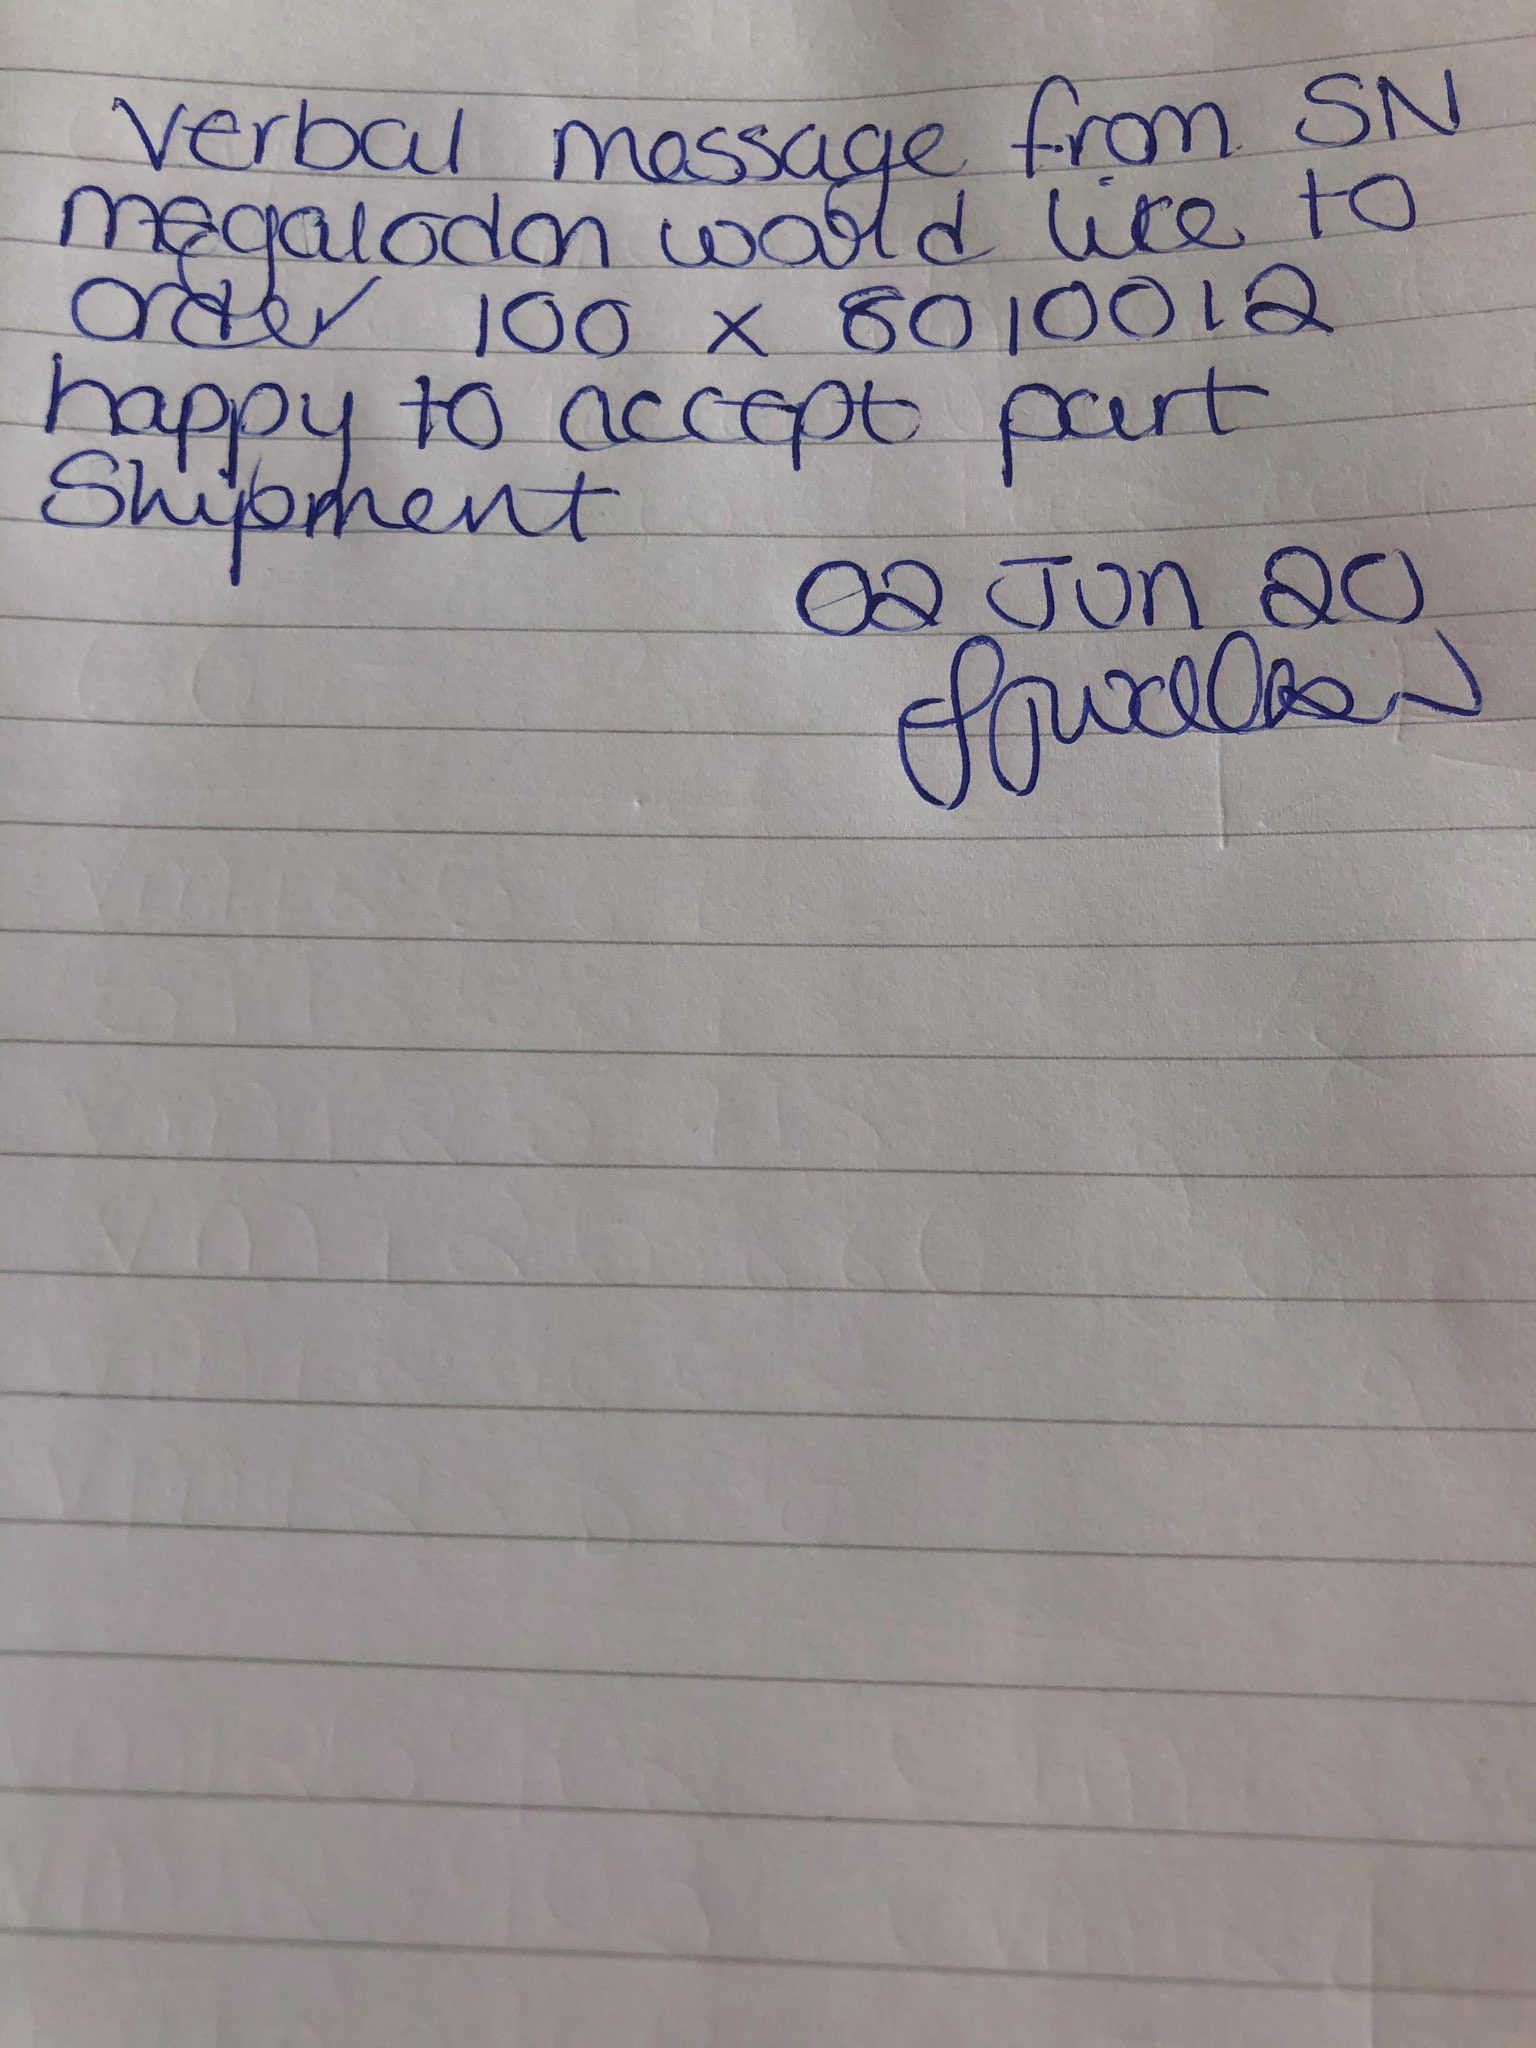 Verbal message from SN
megalodon would like to
order 100 x 8010012
happy to accept part
Shipment
02 Jun 20